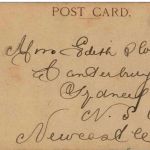 POST CARD.
Miss Edith
Canterbury
Sydney
N. S.
Newcastle